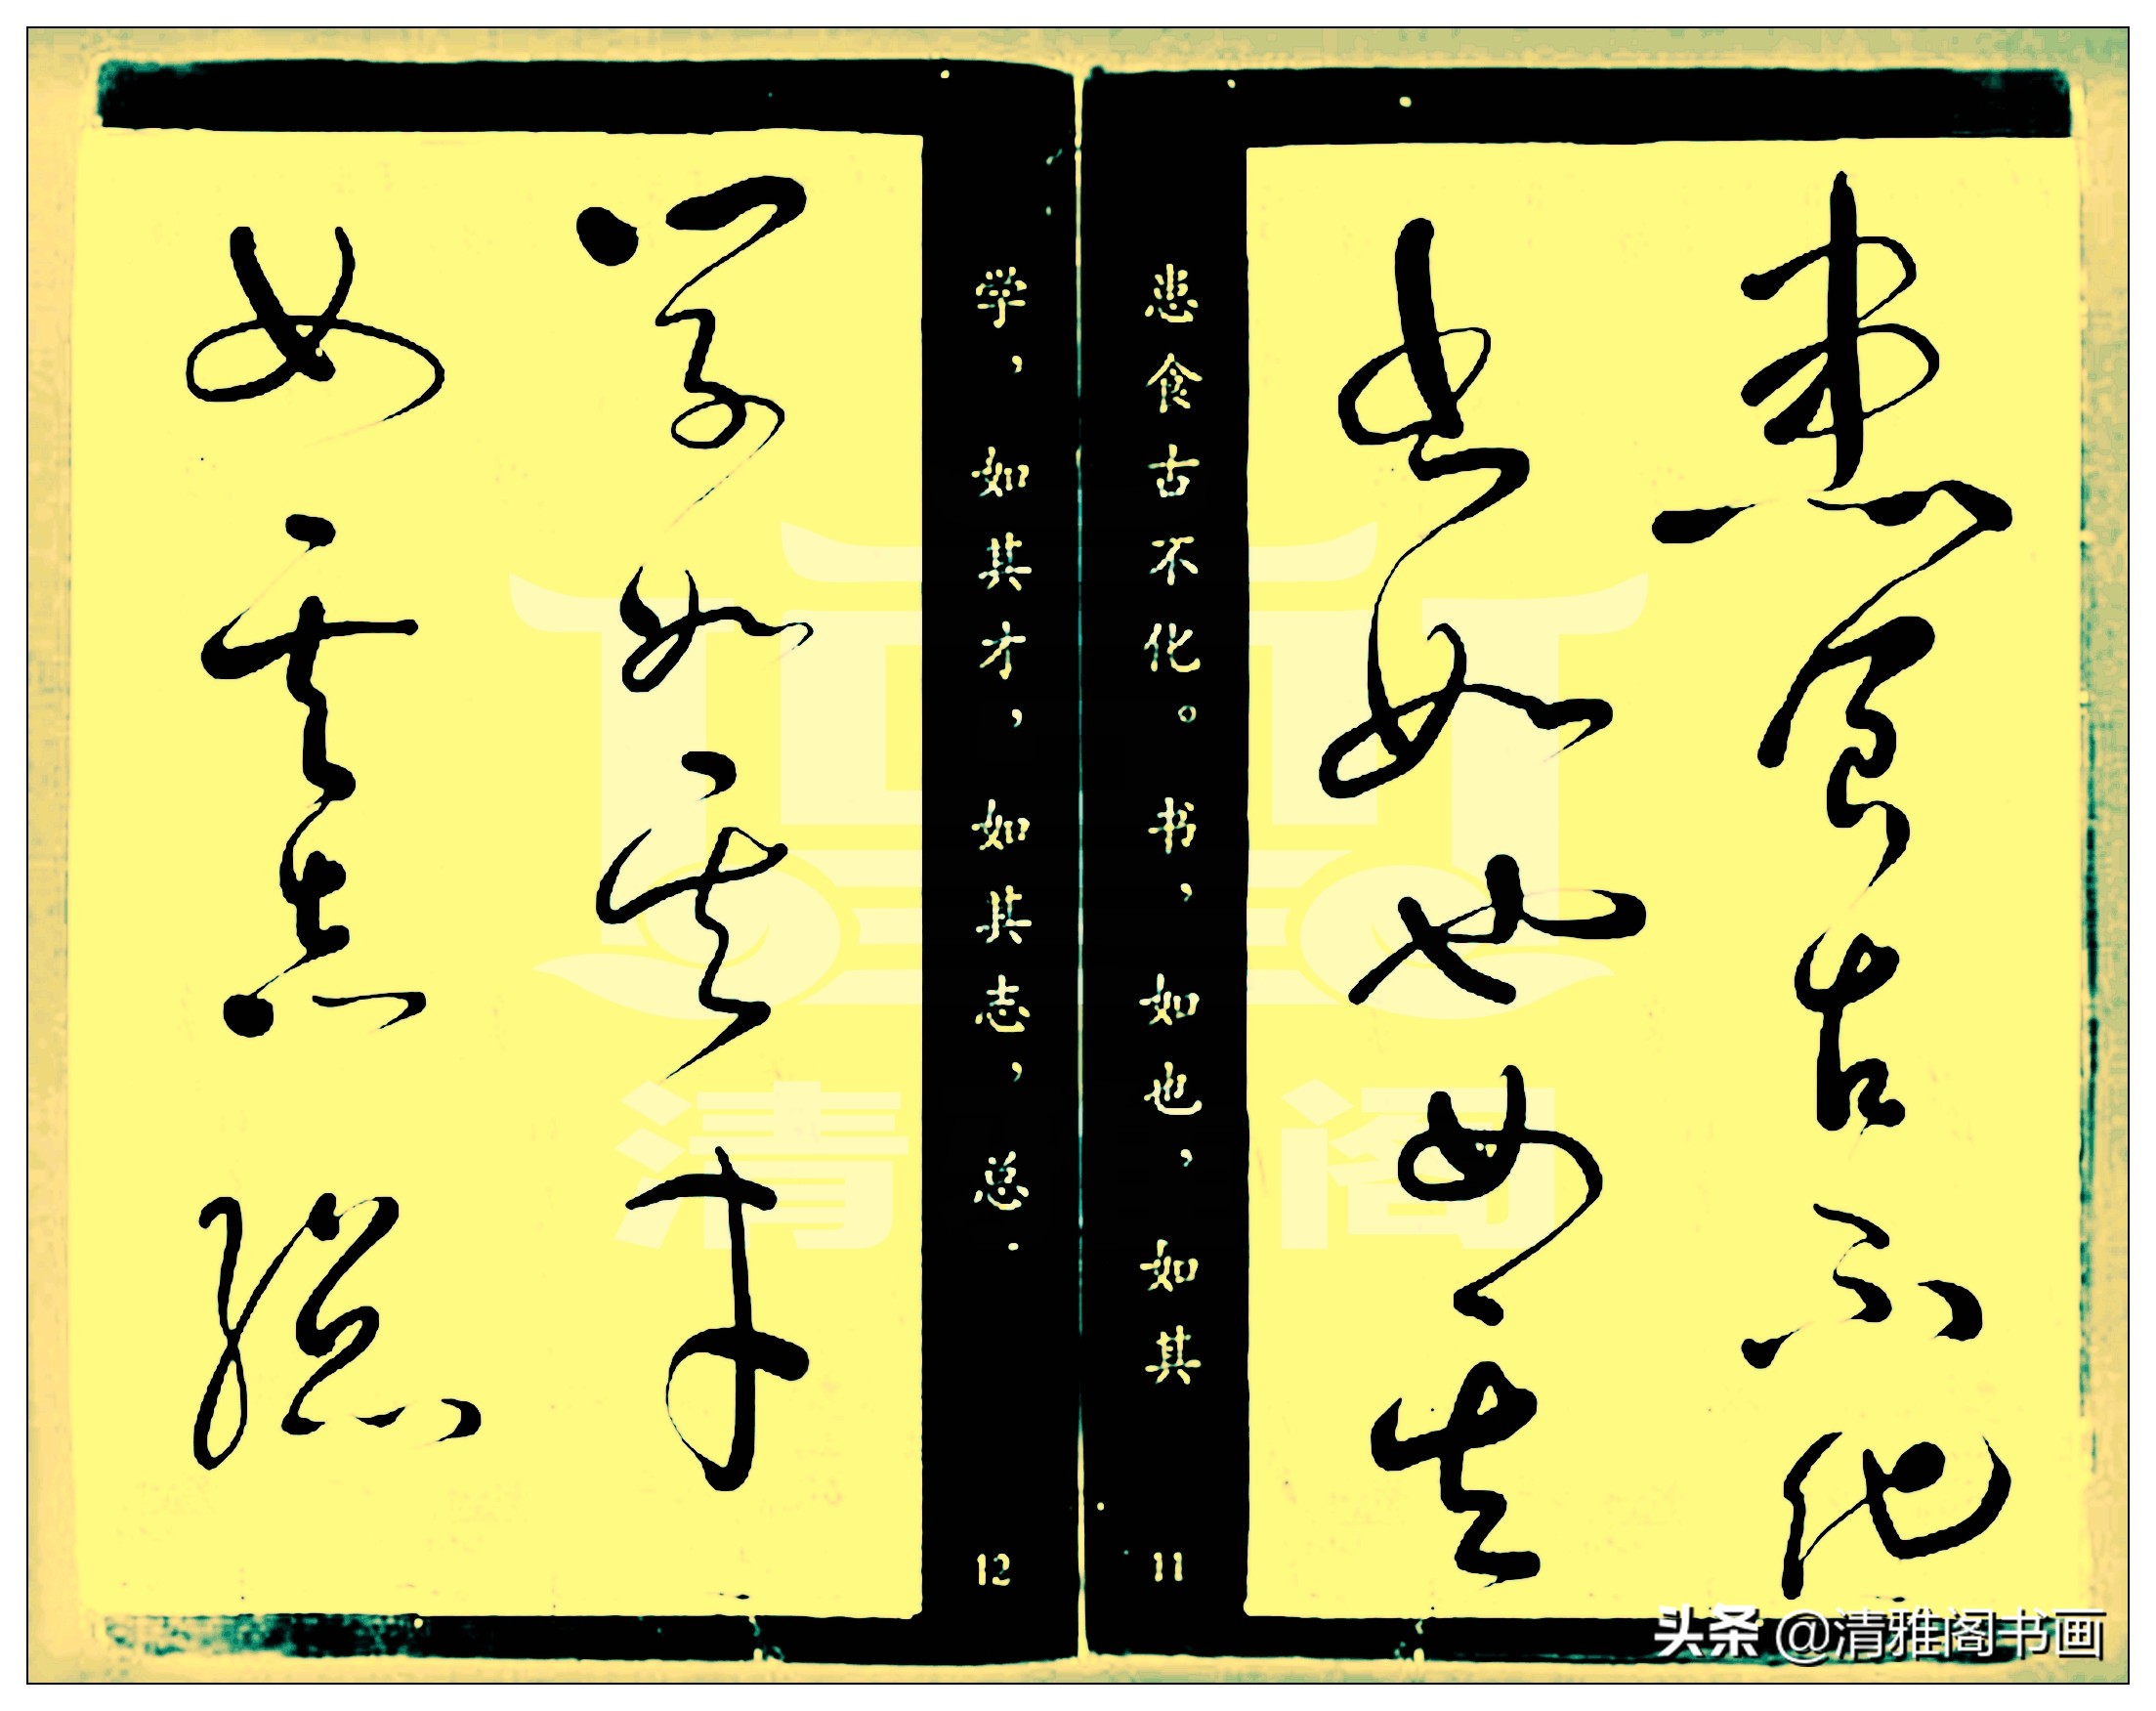 患食古不化
书如也如其
患食古不化。书，如也，如其
11
学如其才
如其志总
学，如其才，如其志，总·
12
清 阁
头条 @清雅阁书画